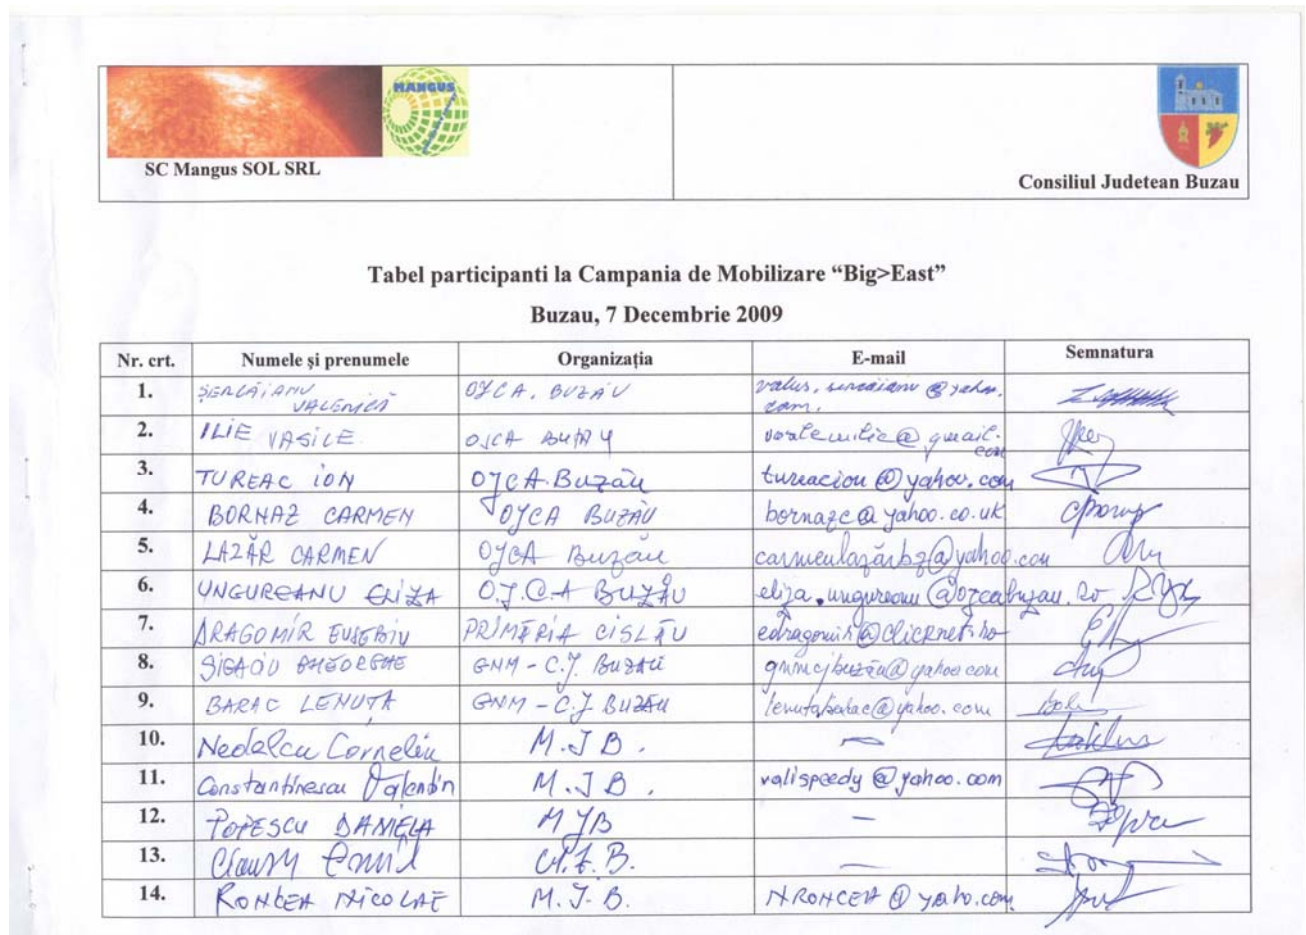 MANGUS
SC Mangus SOL SRL
Consiliul Judetean Buzau
Tabel participanti la Campania de Mobilizare “Big>East”
Buzau, 7 Decembrie 2009
Nr. crt. Numele și prenumele Organizația E-mail Semnatura
1. VALERICĂ OJCA. BUZĂU
2. ILIE VASILE OJCA
3. TUREAC ION OJCA Buzău tureacion@yahoo.com
4. BORNAZ CARMEN OJCA BUZĂU bornazc@yahoo.co.uk
5. LAZĂR CARMEN OJCA Buzău carmenlazărbz@yahoo.com
6. UNGUREANU ELIZA O.J.C.A BUZĂU eliza.ungureanu@ojcabuzau.ro
7. DRAGOMIR EUSEBIU PRIMĂRIA CISLĂU edragomir@clicknet.ro
8. GHEORGHE GNM - C.J. BUZĂU gnmcjbuzău@yahoo.com
9. BARAC LENUȚA GNM - C.J BUZĂU lenutabarac@yahoo.com
10. Nedelcu Corneliu M.J B. —
11. Constantinescu Valentin M.J B. valispeedy@yahoo.com
12. POPESCU DANIELA MJB —
13. Emil —
14. RONCEA NICOLAE M.J.B. NRONCEA@yaho.com